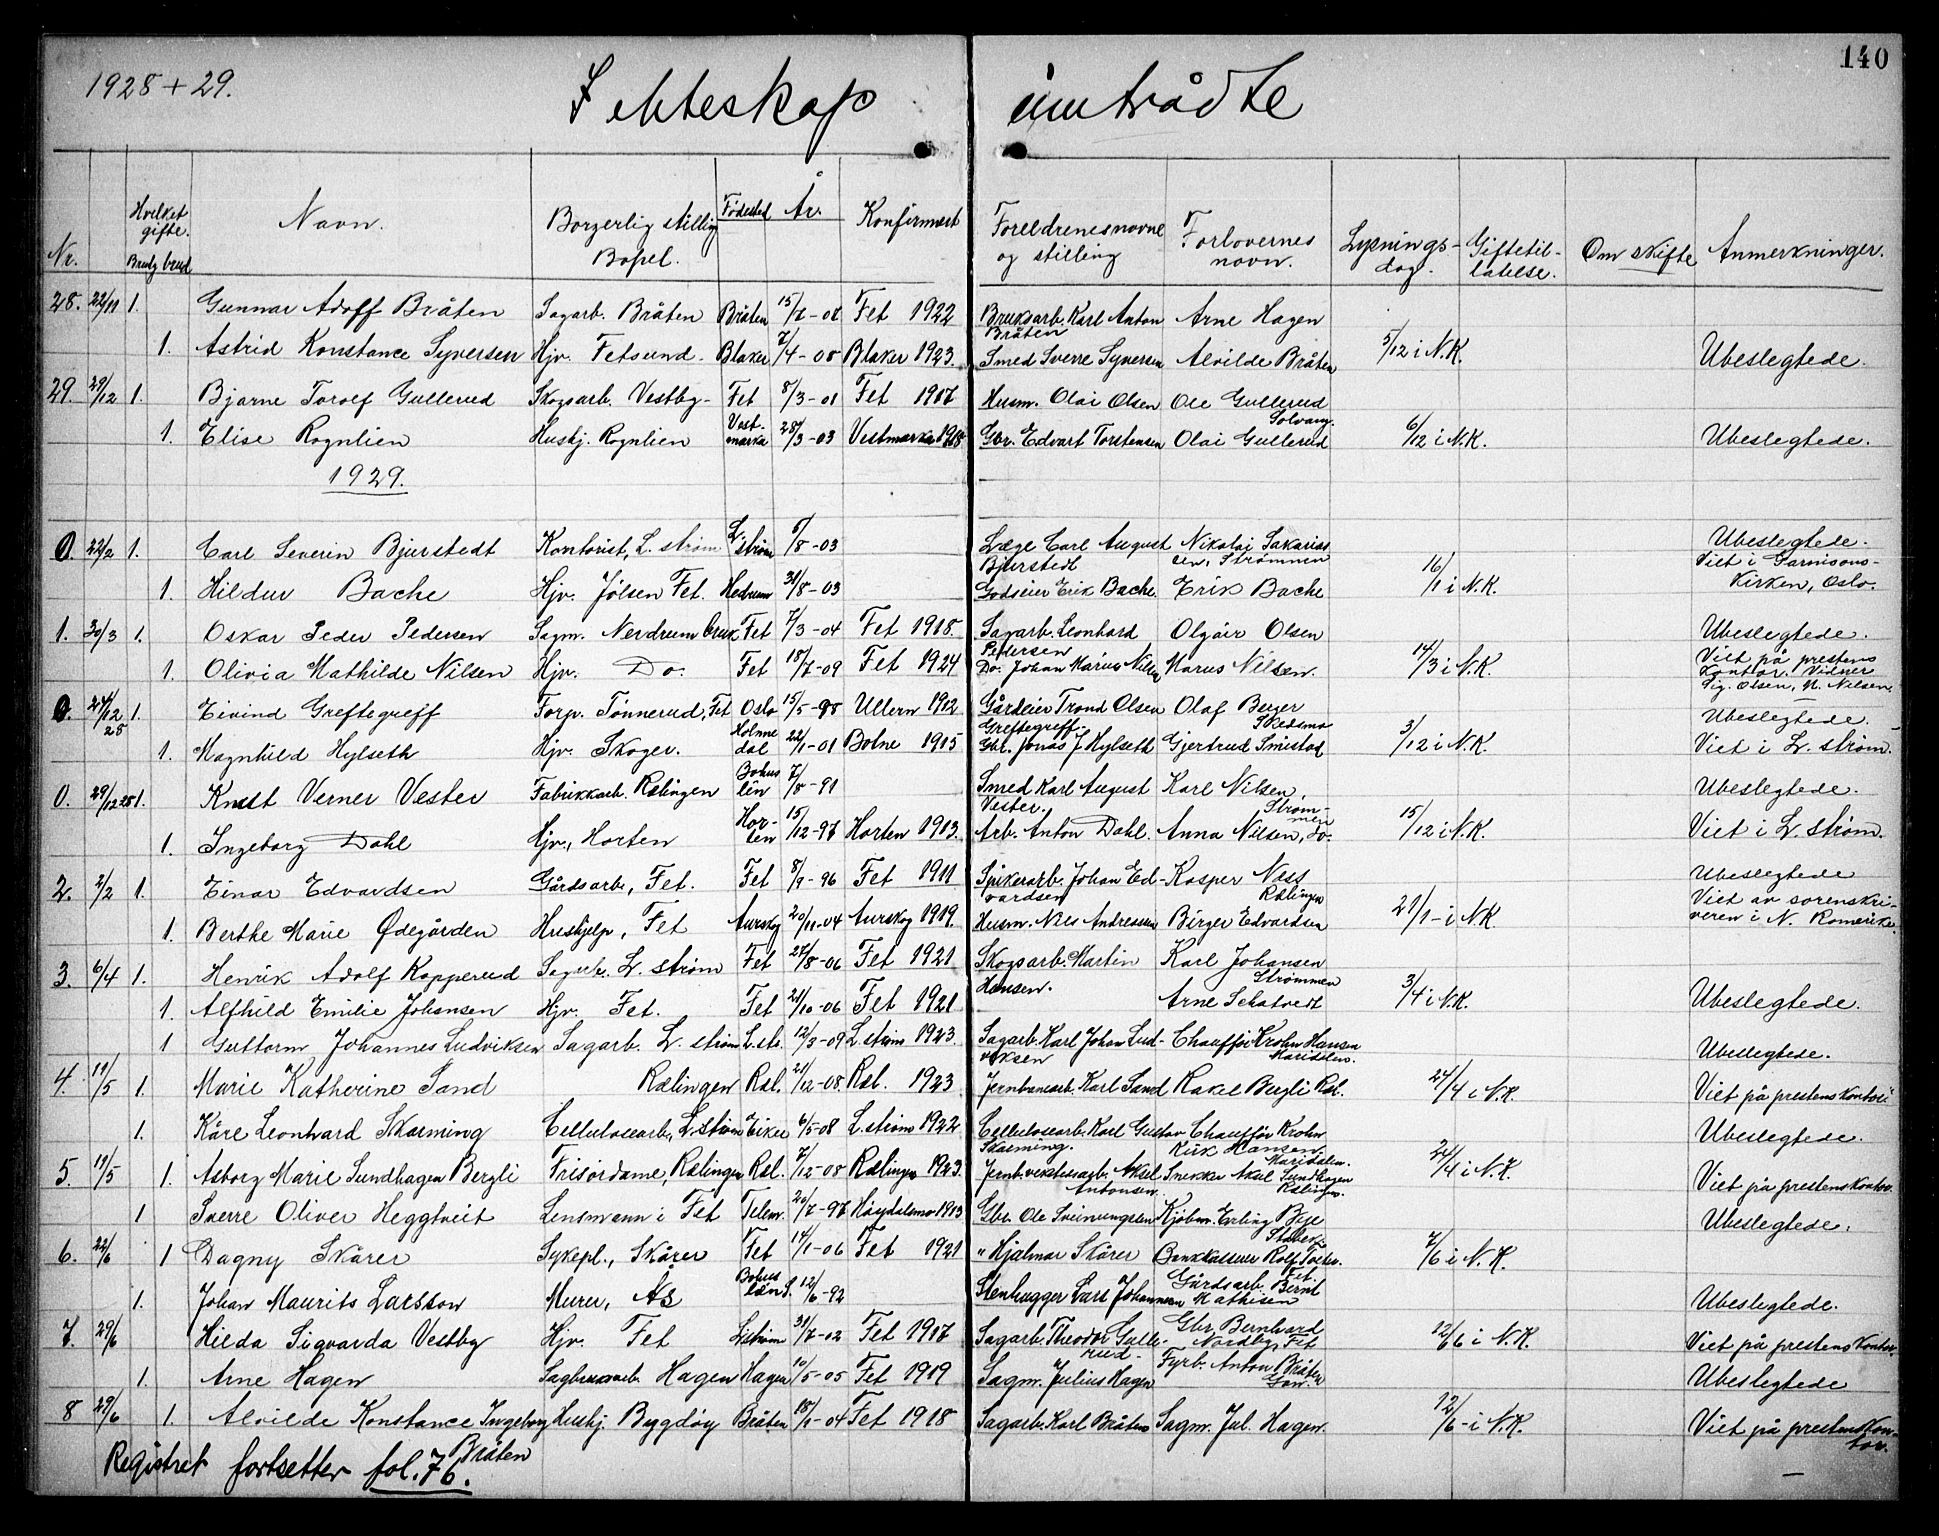 140
1928 + 29. Ekteskap inntrådte
Nr. Hvilket gifte. Brudg. brud Navn. Borgerlig stilling Bopel. Fødested År. Konfirmert Foreldrenes navne og stilling Forlovernes navn. Lysnings-dag. Giftetil-latelse. Om skifte Anmerkninger.
28. 22/11 1. Gunnar Adolf Bråten Sagarb. Bråten Bråten 15/7-02 Fet 1922 Bruksarb. Karl Anton Bråten Arne Hagen
1. Astrid Konstance Syversen Hjv. Fetsund. Blaker 7/4-08 Blaker 1923. Smed Sverre Syversen Alvilde Bråten 5/12 i N.K. Ubeslegtede.
29. 29/12 1. Bjarne Torolf Gullerud Skogsarb. Vestby- Fet 8/3-01 Fet 1917 Husm. Olai Olsen Ole Gullerud Solvang.
1. Elise Rognlien Hushj. Rognlien Vest-marka 28/3-03 Vestmarka 1918 Gbr. Edvart Torstensen Olai Gullerud 6/12 i N.K. Ubeslegtede.
1929.
0. 22/2 1. Carl Severin Bjurstedt Kontorist, L. strøm L. strøm 5/8-03 Læge Carl August Bjurstedt Nikolai Sakarias sen, Strømmen Ubeslegtede.
1. Hildur Bache Hjv. Jølsen Fet. Hedrum 31/8-03 Godseier Erik Bache. Erik Bache 16/1 i N.K. Viet i Garnisons-Kirken, Oslo.
1. 30/3 1. Oskar Peder Pedersen Sagm. Nerdrum bruk Fet 7/3-04 Fet 1918. Sagarb. Leonhard Pedersen Olgair Olsen Ubeslegtede.
1. Olivia Mathilde Nilsen Hjv. Do. Fet 18/7-09 Fet 1924 Do. Johan Marius Nilsen Marus Nilsen. 14/3 i N.K. Viet på prestens Kontor. Vidner Sig. Olsen, M. Nilsen.
0. 24/12 28 1. Eivind Greftegreff Forp. Tønnerud, Fet Oslo 15/5-98 Ullern 1912 Gårdeier Trond Olsen Greftegreff- Olaf Berger Skedsmo Ubeslegtede.
1. Magnhild Hylseth Hjv. Skoger. Holme dal 22/1-01 Botne 1915 Gbr. Jonas J Hylseth Gjertrud Smestad 3/12 i N.K. Viet i L. strøm.
0. 29/12 28 1. Knut Verner Vester Fabrikkarb. Rælingen Bohus len 7/8-91 Smed Karl August Vester. Karl Nilsen, Strøm-men Ubeslegtede.
1. Ingeborg Dahl Hjv., Horten Hor-ten 15/12-97 Horten 1913. Arb. Anton Dahl. Anna Nilsen, do. 15/12 i N.K. Viet i L. strøm.
2. 2/2 1. Einar Edvardsen Gårdsarb., Fet. Fet 8/9-96 Fet 1911 Spikerarb. Johan Ed-vardsen Kasper Næss Rælingen Ubeslegtede
1. Berthe Marie Ødegården Hushjelp, Fet Aurskog 20/11-04 Aurskog 1919. Husm. Nils Andressen Birger Edvardsen 21/1- i N.K. Viet av sorenskri-veren i N. Romerike.
3. 6/4 1. Henrik Adolf Kopperud Sagarb. L. strøm Fet 27/8-06 Fet 1921 Skogsarb. Martin Hansen. Karl Johansen Strømmen
1. Alfhild Emilie Johansen Hjv. Fet. Fet 21/10-06 Fet 1921 Arne Schatvedt 3/4 i N.K. Ubeslegtede.
1 Guttorm Johannes Ludviksen Sagarb. L. strøm L. str. 12/3-09 L. strøm 1923. Sagarb. Karl Johan Lud-viksen Chauffør Krohn Hansen Maridalen. Ubeslegtede.
4. 11/5 1. Marie Katherine Sand Rælingen Ræl. 21/12-08 Ræl. 1923 Jernbanearb. Karl Sand Rakel Bergli Ræl. 24/4 i N.K. Viet på prestens kontor.
1. Kåre Leonhard Skarning Cellulosearb., L. strøm Eiker 6/5-08 L. strøm 1922. Cellulosearb. Karl Gustav Skarning. Chauffør Krohn Kirk Hansen. Maridalen. Ubeslegtede.
5. 11/5 1. Asborg Marie Sundhagen Bergli Frisørdame, Rælingen Ræl. 7/12-08 Rælingen 1923. Jernb.vektesarb. Aksel Antonsen. Snekker Aksel Sundhagen Rælingen. 24/4 i N.K. Viet på prestens kontor.
1 Sverre Oliver Heggtveit Lensmann i Fet Telem. 20/7-97 Høydalsmo 1913 Gbr. Ole Sveinungsen Kjøbm. Erling Bye Ubeslegtede.
6. 22/6 1 Dagny Skårer Sykepl., Skårer Fet 14/1-06 Fet 1921 " Hjalmar Skårer Bankkasserer Rolf Fet. 7/6 i N.K.
1. Johan Maurits Larsson Murer, Ås Bohus len S. 12/6-92 Stenhugger Lars Johannesen Gårdsarb. Bernt Mathisen Ubeslegtede.
7. 29/6 Hilda Sigvarda Vestby Hjv. Fet L. strøm 31/7-02 Fet 1917 Sagarb. Theodor Gulle-rud- Gbr. Bernhard Nordby, Fet 12/6 i N.K. Viet på prestens kontor.
1. Arne Hagen Sagbruksarb. Hagen Hagen 10/5-05 Fet 1919 Sagm. Julius Hagen Fyrb. Anton Bråten Ubeslegtede
8 29/6 1. Alvilde Konstance Ingeborg Bråten Hushj. Bygdøy Bråten 18/1-04 Fet 1918 Sagarb. Karl Bråten Sagm. Jul. Hagen. 12/6- i N.K. Viet på prestens Kon-tor.
Registret fortsetter fol. 76.